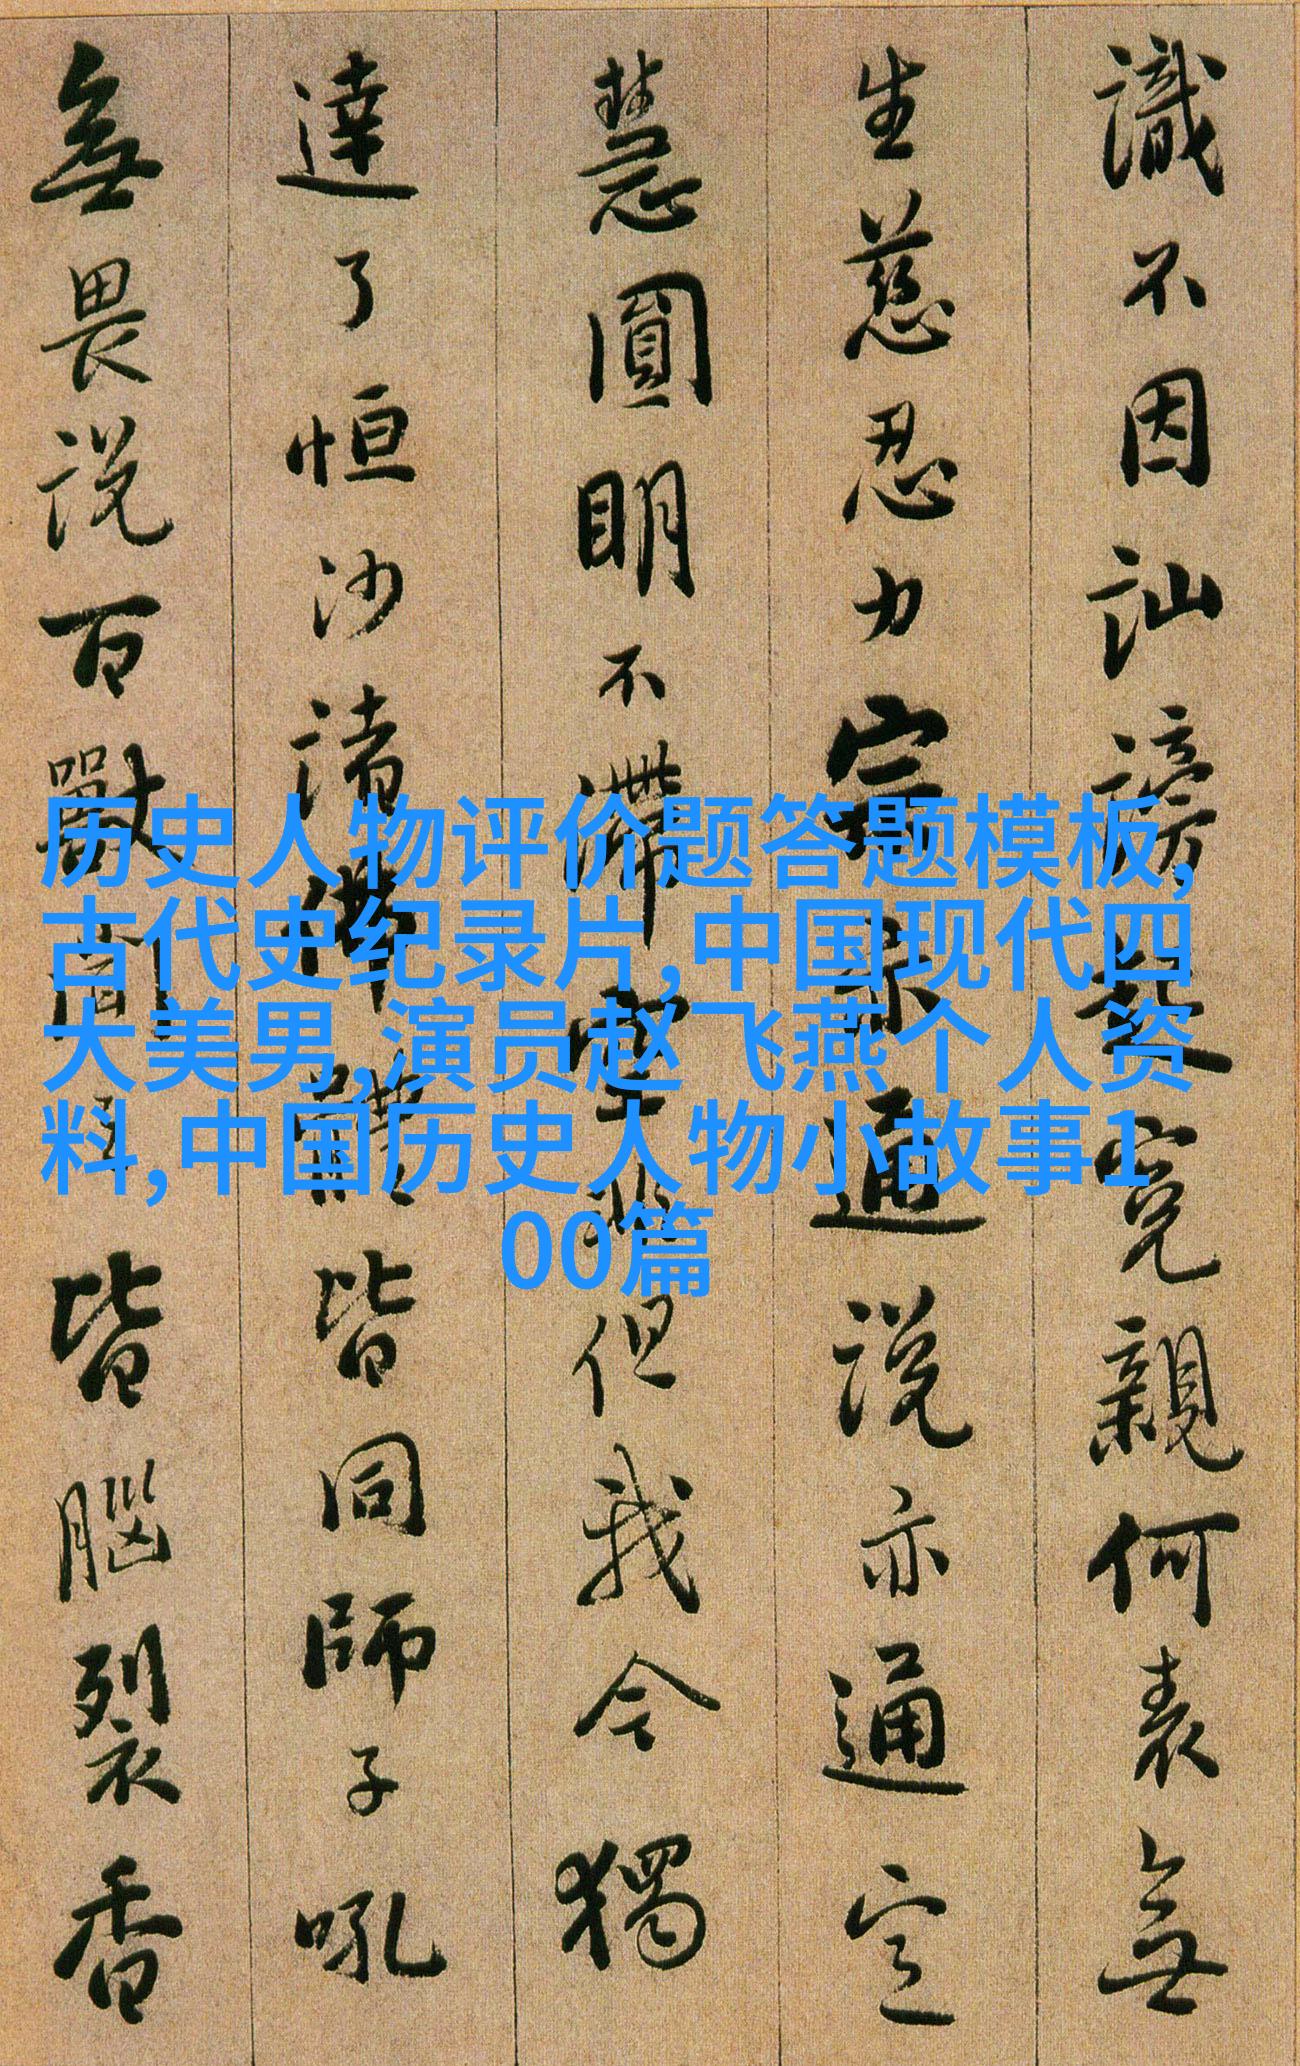 識不因訕謗起寃親何表無
生慈忍力宗亦通說亦通定
慧圓明不滯空非但我今獨
達了恒沙諸佛體皆同師子吼
無畏說百獸聞之皆腦裂香
历史人物评价题答题模板,
古代史纪录片,中国现代四
大美男,演员赵飞燕个人资
料,中国历史人物小故事1
00篇